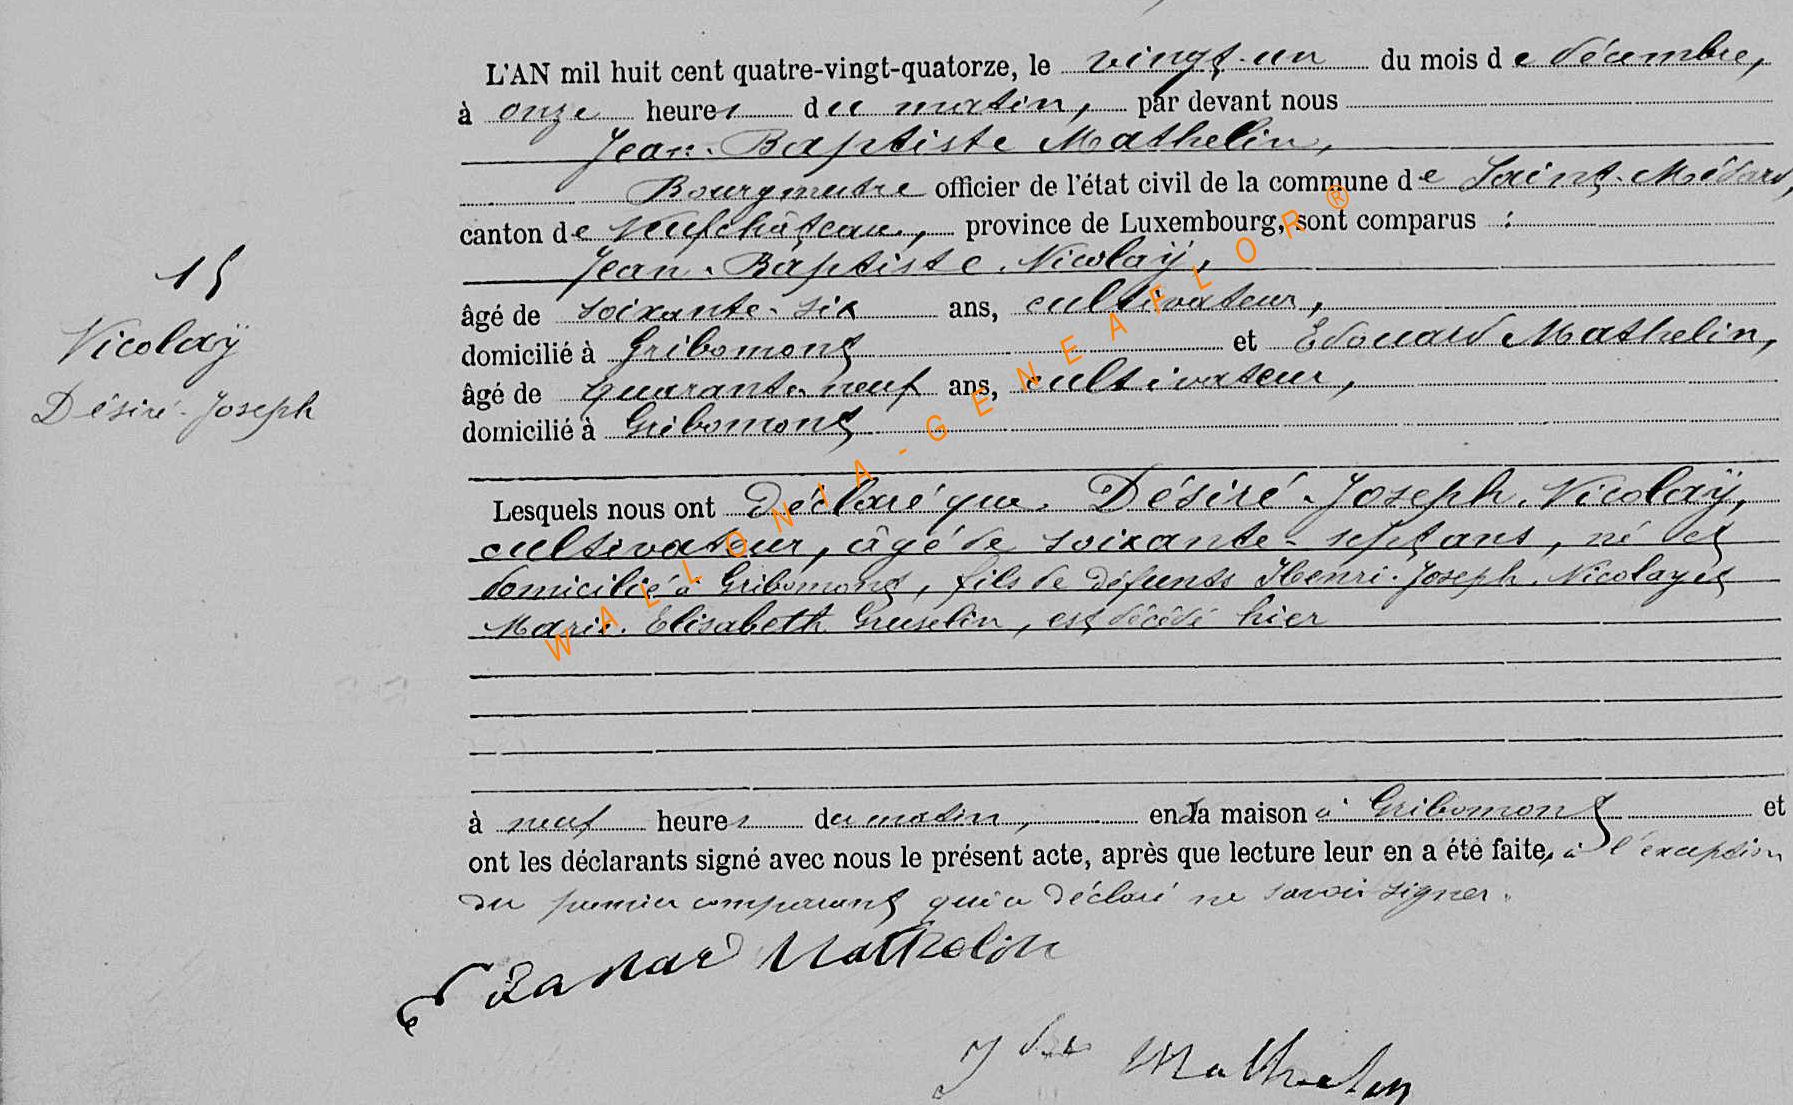 L'AN mil huit cent quatre-vingt-quatorze, le vingt-un du mois de décembre,
à onze heures du matin, par devant nous
Jean-Baptiste Mathelin,
Bourgmestre officier de l'état civil de la commune de Saint-Médard,
canton de Neufchâteau, province de Luxembourg, sont comparus :
Jean-Baptiste Nicolaÿ,
âgé de soixante-six ans, cultivateur,
domicilié à Gribomont et Edouard Mathelin,
âgé de quarante-neuf ans, cultivateur,
domicilié à Gribomont
15
Nicolaÿ
Désiré-Joseph
Lesquels nous ont déclaré que Désiré-Joseph Nicolaÿ,
cultivateur, âgé de soixante-sept ans, né et
domicilié à Gribomont, fils de défunts Henri-Joseph Nicolay et
Marie-Elisabeth Gruselin, est décédé hier
à neuf heures du matin, en sa maison à Gribomont et
ont les déclarants signé avec nous le présent acte, après que lecture leur en a été faite, à l'exception
du premier comparant qui a déclaré ne savoir signer.
Edouard Mathelin
J Bte Mathelin
WALLONIA-GENEAFLOR®